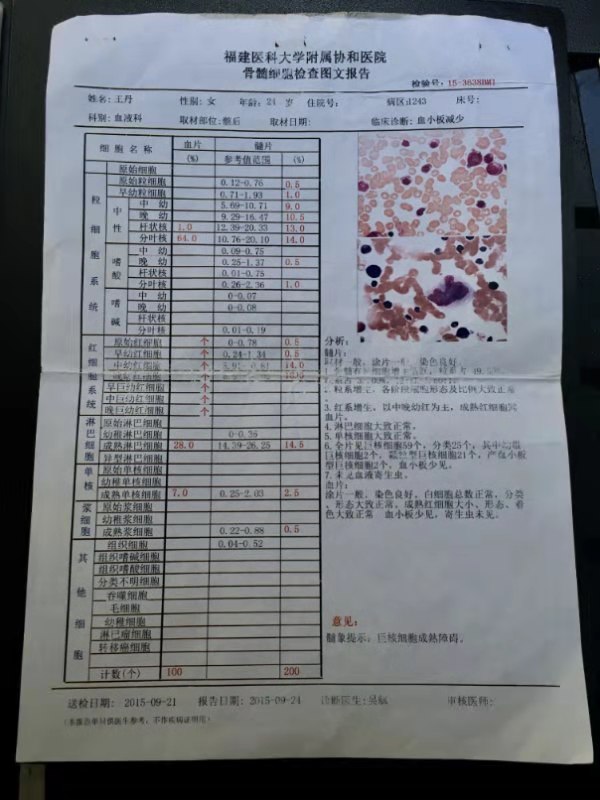 福建医科大学附属协和医院
骨髓细胞检查图文报告
检验号: 15-3638BM1
姓名: 王丹 性别: 女 年龄: 24 岁 住院号: 病区:1243 床号:
科别: 血液科 取材部位: 髂后 取材日期: 临床诊断: 血小板减少
细胞名称 血片 (%) 髓片 参考值范围 (%)
粒细胞系统
原始细胞
原始粒细胞 0.12-0.76 0.5
早幼粒细胞 0.71-1.93 1.0
中性
中幼 5.69-10.71 9.0
晚幼 9.29-16.47 10.5
杆状核 1.0 12.39-20.33 13.0
分叶核 64.0 10.76-20.10 14.0
嗜酸
中幼 0.09-0.75
晚幼 0.25-1.37 0.5
杆状核 0.01-0.75
分叶核 0.26-2.36 1.0
嗜碱
中幼 0-0.07
晚幼 0-0.08
杆状核
分叶核 0.01-0.19
红细胞系统
原始红细胞 个 0-0.78 0.5
早幼红细胞 个 0.24-1.34 0.5
中幼红细胞 个 14.0
个
早巨幼红细胞 个
中巨幼红细胞 个
晚巨幼红细胞 个
淋巴细胞
原始淋巴细胞
幼稚淋巴细胞
成熟淋巴细胞 28.0 14.39-26.25 14.5
异型淋巴细胞
单核
原始单核细胞
幼稚单核细胞
成熟单核细胞 7.0 0.25-2.03 2.5
浆细胞
原始浆细胞
幼稚浆细胞
成熟浆细胞 0.22-0.88 0.5
其他细胞
组织细胞 0.04-0.52
组织嗜碱细胞
组织嗜酸细胞
分类不明细胞
吞噬细胞
毛细胞
幼稚细胞
淋巴瘤细胞
转移癌细胞
计数(个) 100 200
分析:
髓片:
取材一般, 涂片一般, 染色良好。
2.粒系增生, 各阶段细胞形态及比例大致正常
3.红系增生, 以中晚幼红为主, 成熟红细胞同
血片。
4.淋巴细胞大致正常。
5.单核细胞大致正常。
6.全片见巨核细胞59个, 分类25个, 其中幼稚
巨核细胞2个, 颗粒型巨核细胞21个, 产血小板
型巨核细胞2个, 血小板少见。
7.未见血液寄生虫。
血片:
涂片一般, 染色良好, 白细胞总数正常, 分类
、形态大致正常, 成熟红细胞大小、形态、着
色大致正常 血小板少见, 寄生虫未见。
意见:
髓象提示: 巨核细胞成熟障碍。
送检日期: 2015-09-21 报告日期: 2015-09-24 诊断医生: 审核医师:
(本报告单只供医生参考, 不作疾病证明范)